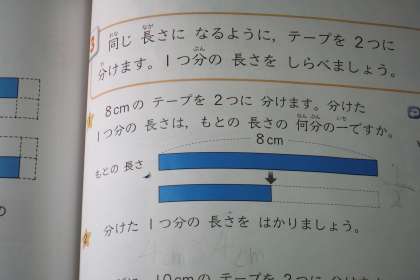 同じ 長さに なるように，テープを 2つに
分けます。1つ分の 長さを しらべましょう。
8cmの テープを 2つに 分けます。分けた
1つ分の 長さは，もとの 長さの 何分の一ですか。
8cm
もとの 長さ
1/2
分けた 1つ分の 長さを はかりましょう。
4cm 4cm
10cmの テープを 2つに 分けます
の